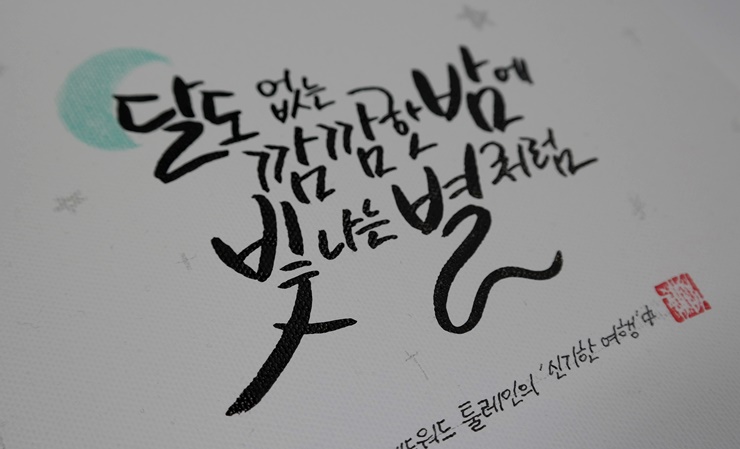 달도 없는
깜깜한 밤에
빛나는 별처럼
툴레인의 '신기한 여행' 中